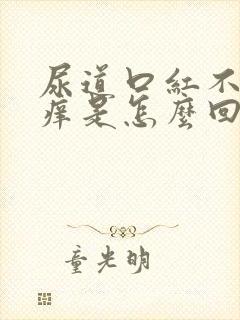 尿道口紅不
痒是怎麼回
童光明